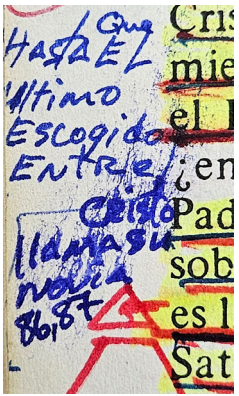 Que
HASTA EL
Ultimo
Escogido
ENTRE
Cristo
llama su
novia
86,87
Cris
mie
el
¿en
Pad
sob
es l
Sat